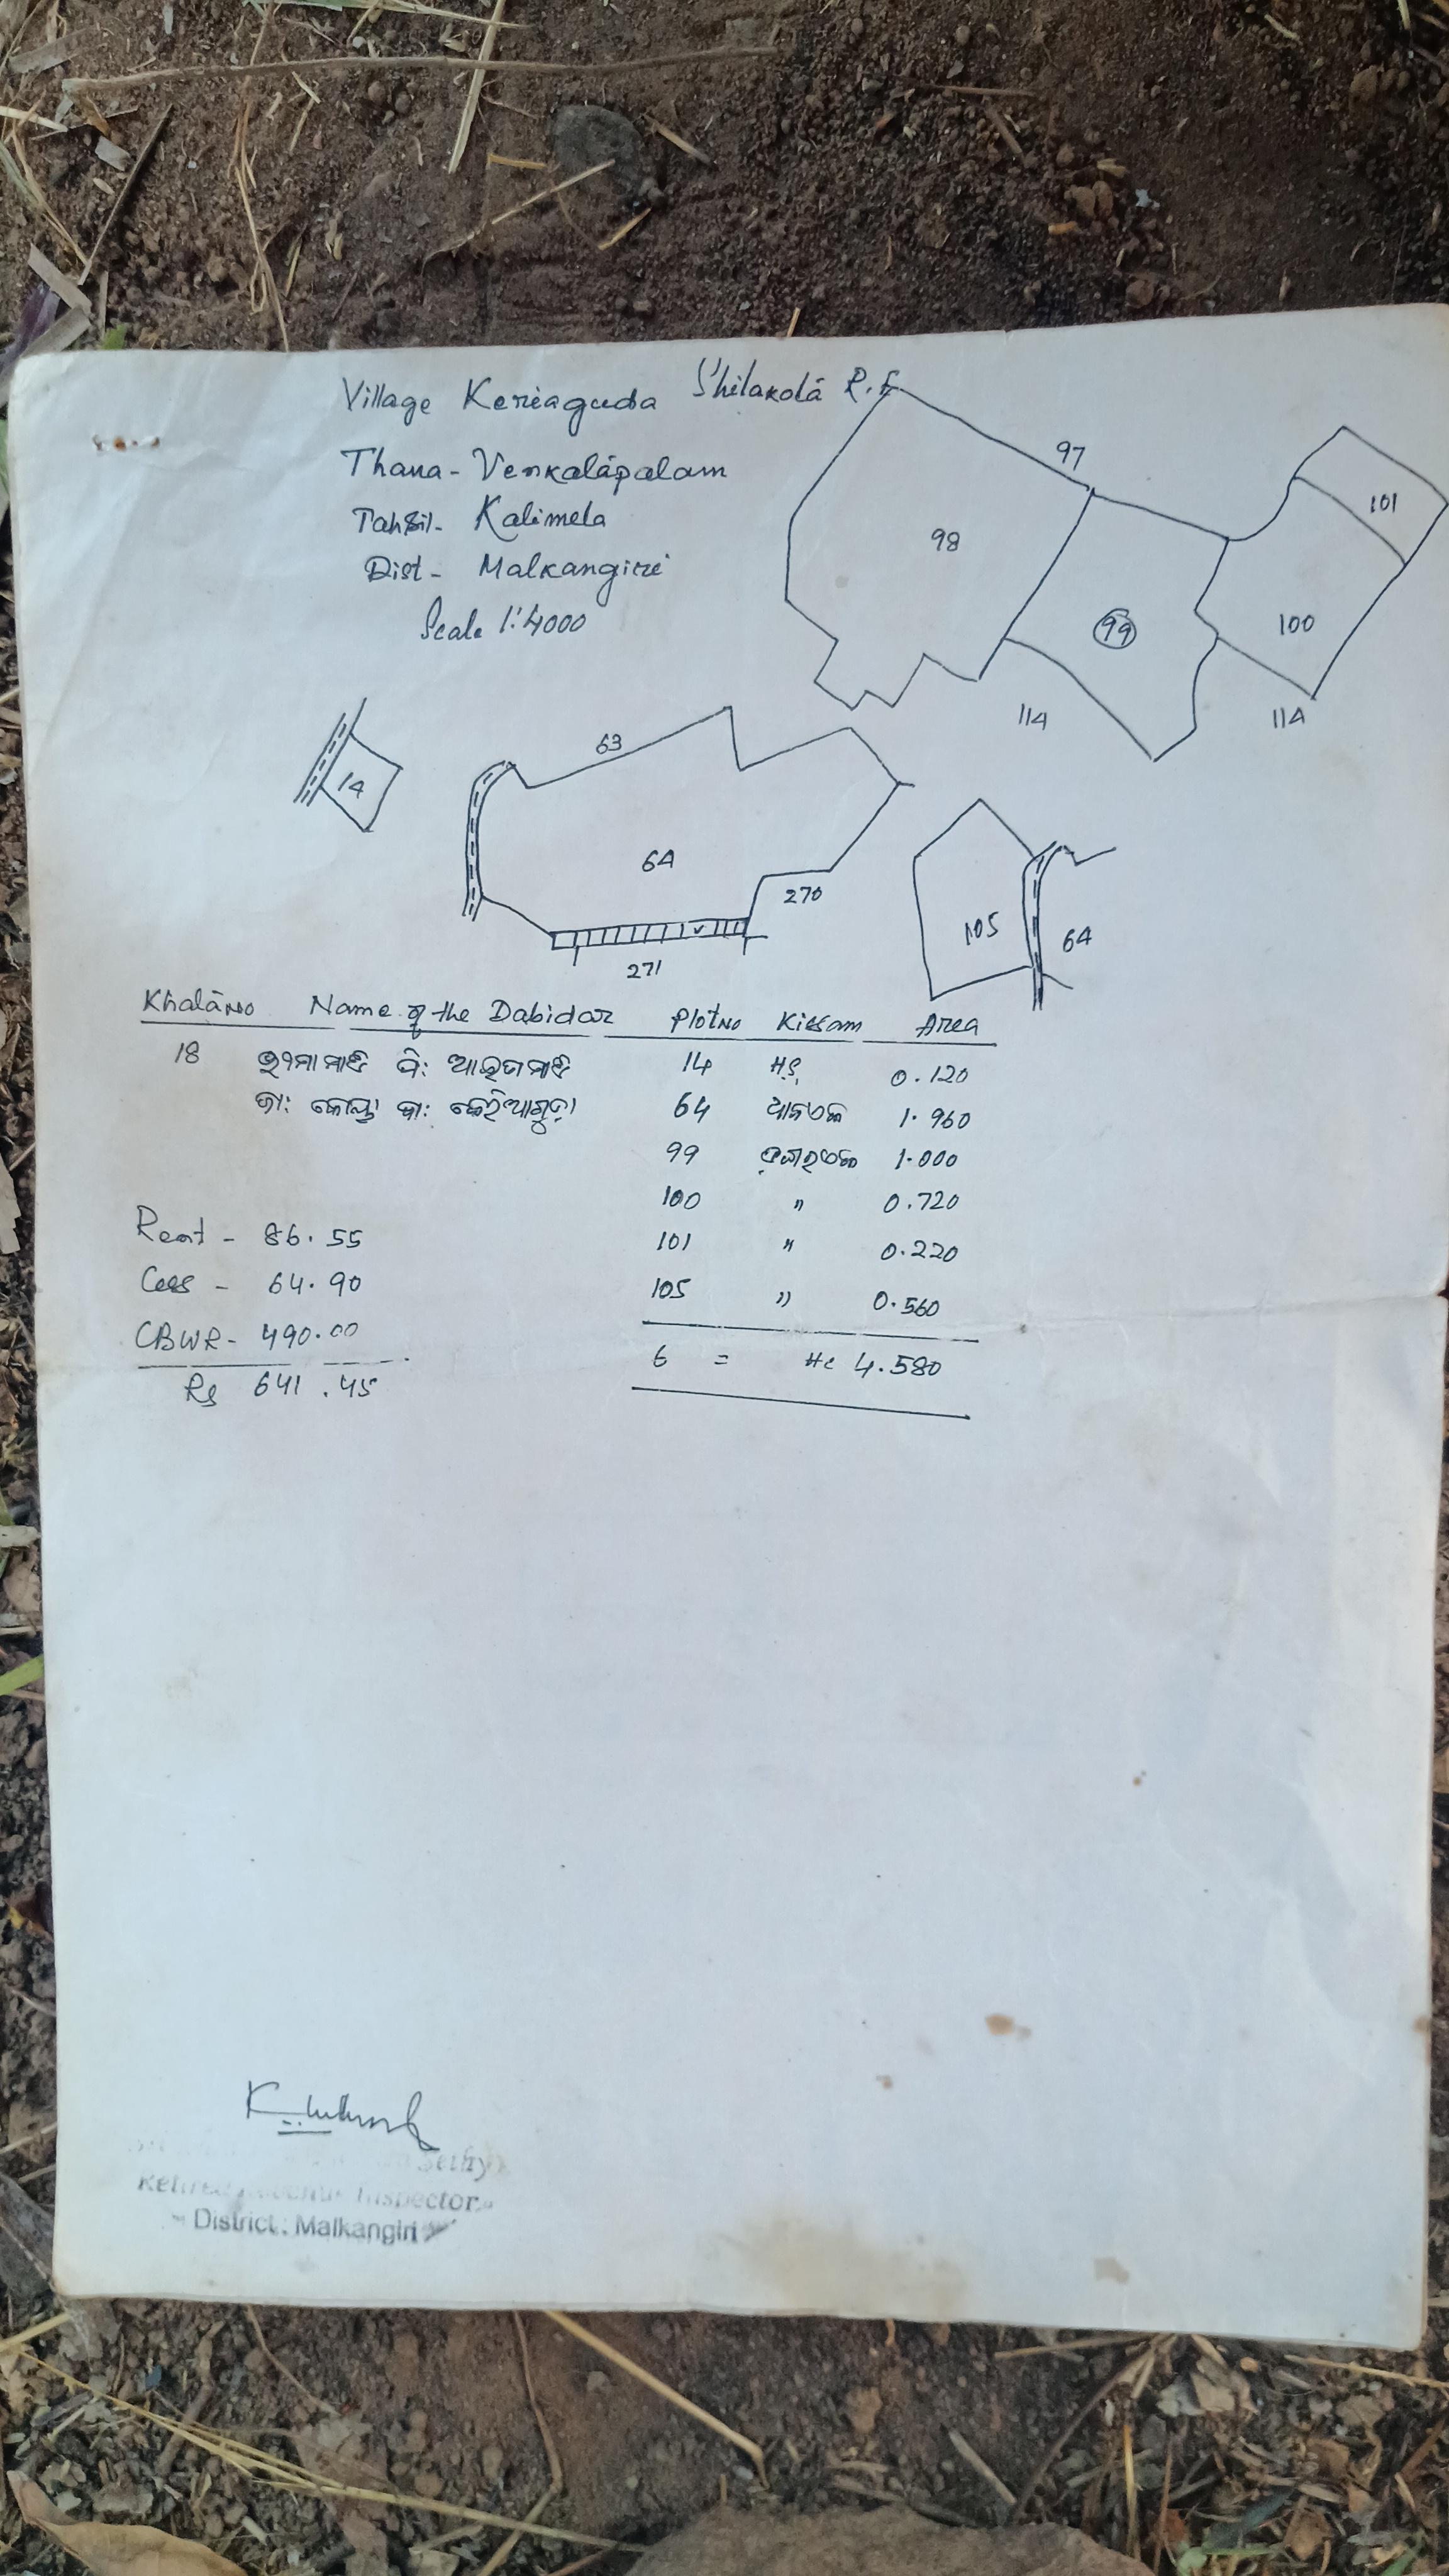 Village Keriaguda Shilakotā R.F
Thana - Venkatāpalam
Tahsil - Kalimela
Dist - Malkangiri
Scale 1:4000
97
98
99
100
101
114
114
14
63
64
270
271
105
64
Khatā No Name of the Dabidar Plot No Kissam Area
18 ଭୀମା ମାଡି ପି: ଆଇତା ମାଡି 14 0.120
ଜା: କୋୟା ବା: କେରିଆଗୁଡ଼ା 64 1.960
99 1.000
100 " 0.720
101 " 0.220
105 " 0.560
6 = Hc 4.580
Rent - 86.55
Cess - 64.90
CBWR - 490.00
Rs 641.45
Sethy
Retired Revenue Inspector
District: Malkangiri